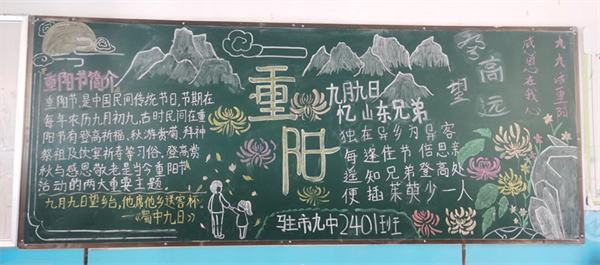 重阳节简介
重阳节,是中国民间传统节日,节期在
每年农历九月初九,古时民间在重
阳节有登高祈福、秋游赏菊、拜神
祭祖及饮宴祈寿等习俗。登高赏
秋与感恩敬老是当今重阳节
活动的两大重要主题。
九月九日望乡台,他席他乡送客杯
——《蜀中九日》
重
阳
九月九日
忆山东兄弟
独在异乡为异客
每逢佳节倍思亲
遥知兄弟登高处
便插茱萸少一人
驻市九中2401班
登高
望远
九九话重阳
感恩在我心